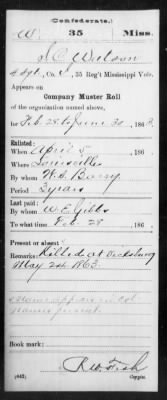 (Confederate.)
W. 35 Miss.
S. C. Watson
Sgt., Co. , 35 Reg't Mississippi Vols.
Appears on
Company Muster Roll
of the organization named above,
for Feb 28 to June 30, 1863.
Enlisted:
When April 5, 186
Where Louisville
By whom W. S. Barry
Period 3 years
Last paid:
By whom W. E. Gibbs
To what time Feb. 28, 186
Present or absent
Remarks: Killed at Vicksburg
May 22d 1863.
name appears in col
names present.
Book mark:
R. W. Fish
(642) Copyist.